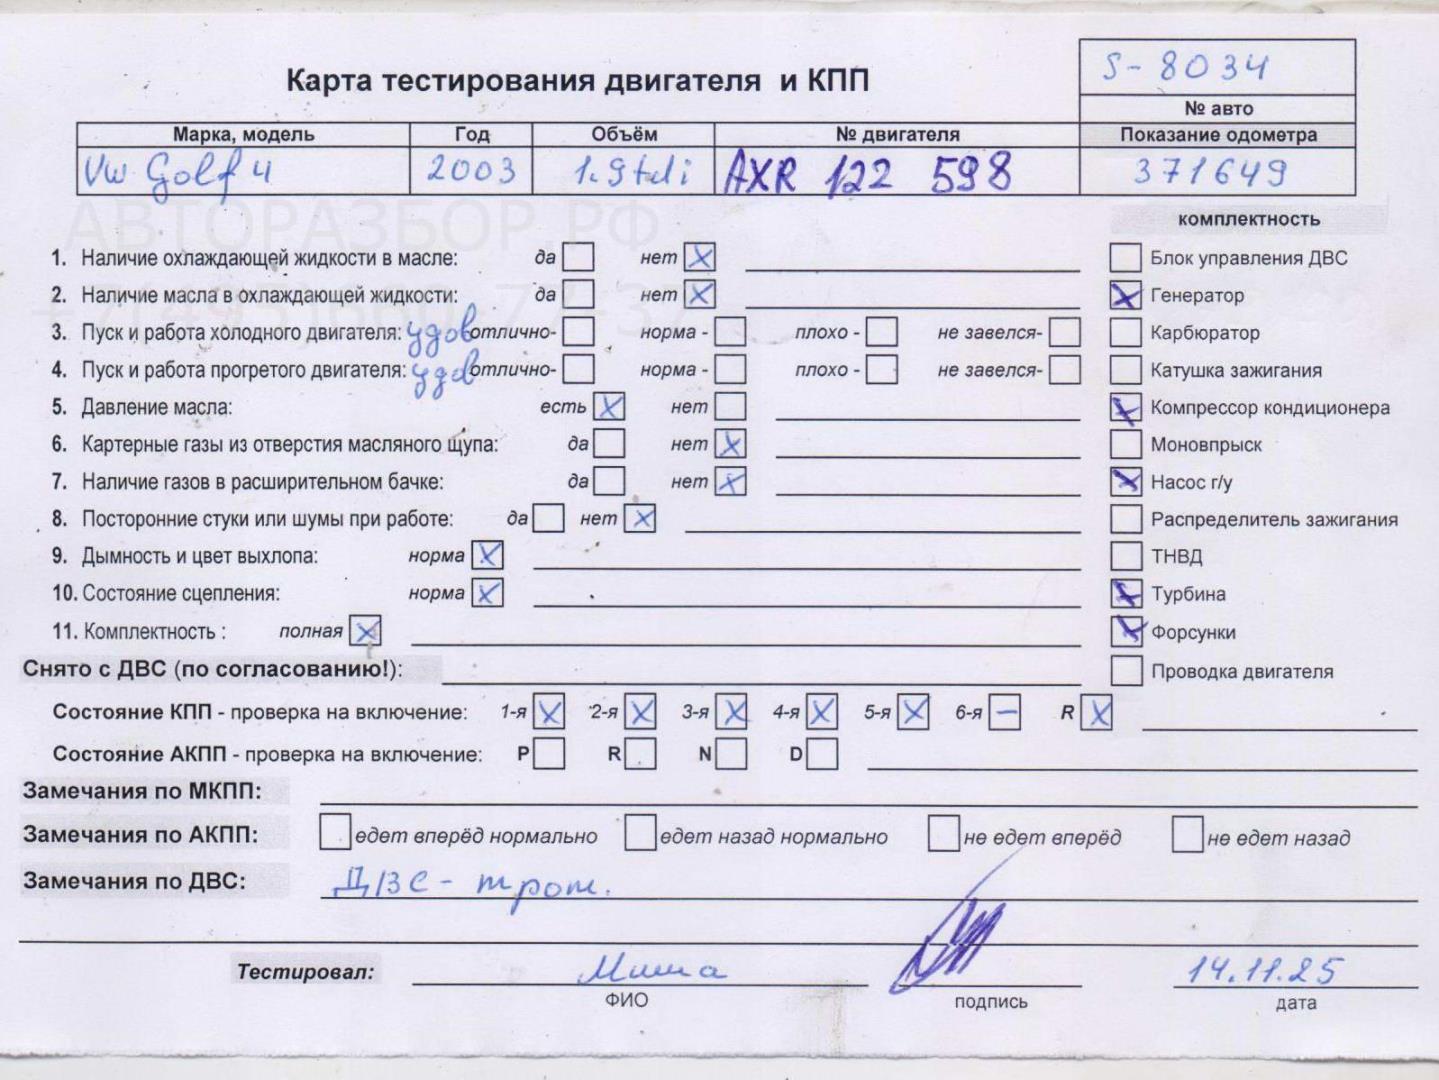 S-8034
Карта тестирования двигателя и КПП
№ авто
Марка, модель Год Объём № двигателя Показание одометра
VW Golf 4 2003 1.9 tdi AXR 122 598 371649
АВТОРАЗБОР.РФ
комплектность
1. Наличие охлаждающей жидкости в масле: да нет X Блок управления ДВС
+7(495)660-77-37
2. Наличие масла в охлаждающей жидкости: да нет X X Генератор
3. Пуск и работа холодного двигателя: удов отлично- норма - плохо - не завелся- Карбюратор
4. Пуск и работа прогретого двигателя: удов отлично- норма - плохо - не завелся- Катушка зажигания
5. Давление масла: есть X нет X Компрессор кондиционера
6. Картерные газы из отверстия масляного щупа: да нет X Моновпрыск
7. Наличие газов в расширительном бачке: да нет X X Насос г/у
8. Посторонние стуки или шумы при работе: да нет X Распределитель зажигания
9. Дымность и цвет выхлопа: норма X ТНВД
10. Состояние сцепления: норма X X Турбина
11. Комплектность : полная X X Форсунки
Снято с ДВС (по согласованию!): Проводка двигателя
Состояние КПП - проверка на включение: 1-я X 2-я X 3-я X 4-я X 5-я X 6-я – R X
Состояние АКПП - проверка на включение: P R N D
Замечания по МКПП:
Замечания по АКПП: едет вперёд нормально едет назад нормально не едет вперёд не едет назад
Замечания по ДВС: ДВС - трот.
Тестировал: Миша 14.11.25
ФИО подпись дата